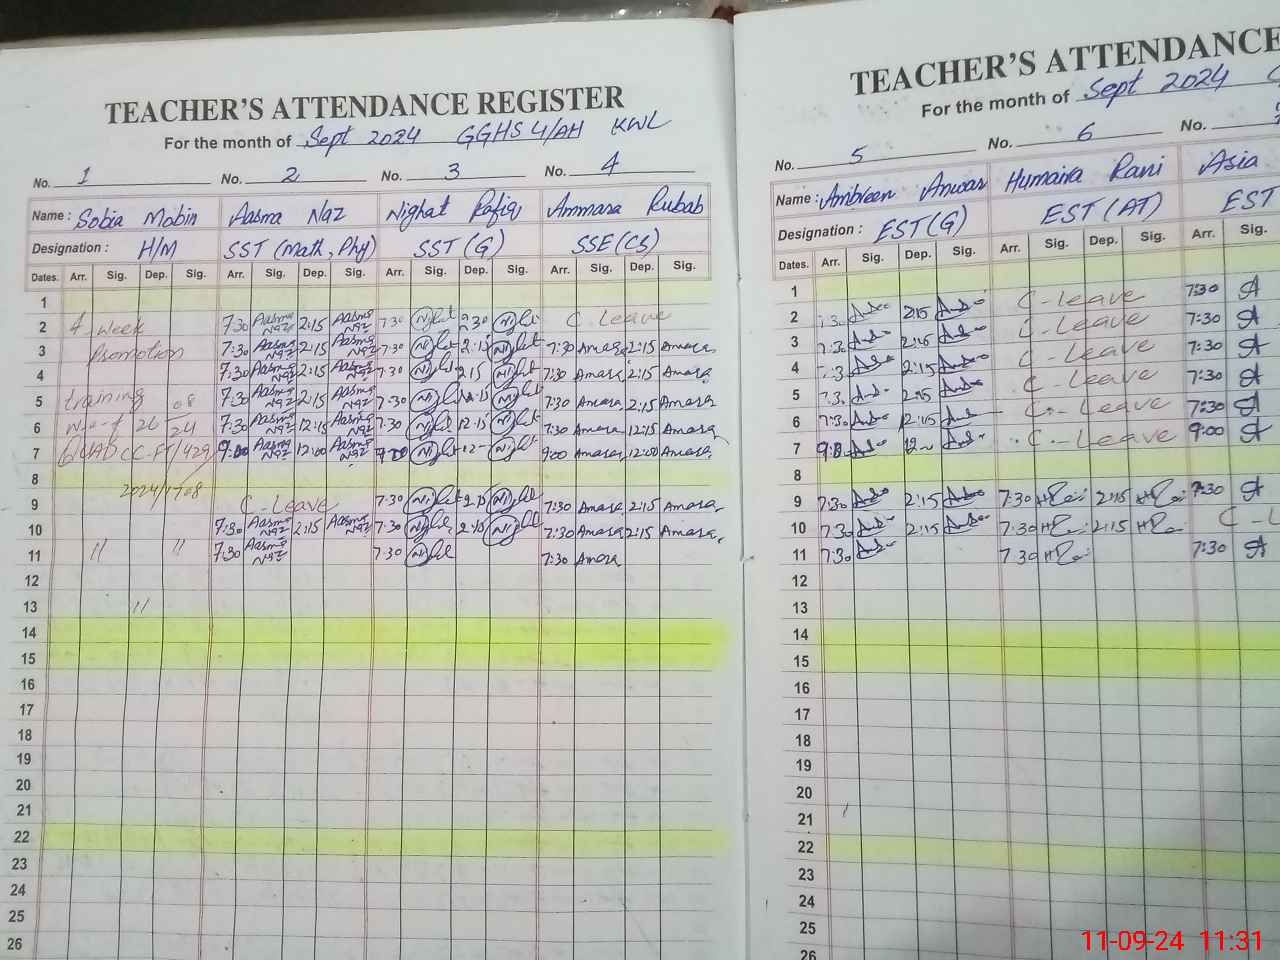 TEACHER'S ATTENDANCE REGISTER
For the month of Sept 2024 GGHS 4/AH KWL
No. 1 No. 2 No. 3 No. 4
Name : Sobia Mobin Aasma Naz Nighat Rafiq Ammara Rubab
Designation : H/M SST (Math, Phy) SST (G) SSE (CS)
Dates. Arr. Sig. Dep. Sig. Arr. Sig. Dep. Sig. Arr. Sig. Dep. Sig. Arr. Sig. Dep. Sig.
1
2 4 week 7:30 Aasma Naz 2:15 Aasma Naz 7:30 2:30 C. Leave
3 Promotion 7:30 Aasma Naz 2:15 Aasma Naz 7:30 2:15 7:30 Amara 2:15 Amara
4 7:30 Aasma Naz 2:15 Aasma Naz 7:30 2:15 7:30 Amara 2:15 Amara
5 training 7:30 Aasma Naz 2:15 Aasma Naz 7:30 2:15 7:30 Amara 2:15 Amara
6 w-e-f 26 08 24 7:30 Aasma Naz 12:15 Aasma Naz 7:30 12:15 7:30 Amara 12:15 Amara
7 9:00 Aasma Naz 12:00 Aasma Naz 9:00 Amara 12:00 Amara
8
9 C-Leave 7:30 2:15 7:30 Amara 2:15 Amara
10 7:30 Aasma Naz 2:15 Aasma Naz 7:30 2:15 7:30 Amara 2:15 Amara
11 // // 7:30 Aasma Naz 7:30 7:30 Amara
12
13 //
14
15
16
17
18
19
20
21
22
23
24
25
26
TEACHER'S ATTENDANCE
For the month of Sept 2024
No. 5 No. 6 No.
Name : Ambreen Anwar Humaira Rani Asia
Designation : EST (G) EST (AT) EST
Dates. Arr. Sig. Dep. Sig. Arr. Sig. Dep. Sig. Arr. Sig.
1
2 7:30 2:15 C-Leave 7:30
3 7:30 2:15 C-Leave 7:30
4 7:30 2:15 C-Leave 7:30
5 7:30 2:15 C-Leave 7:30
6 7:30 12:15 C-Leave 7:30
7 C-Leave 9:00
8
9 7:30 2:15 7:30 2:15 7:30
10 7:30 2:15 7:30 2:15
11 7:30 7:30 7:30
12
13
14
15
16
17
18
19
20
21
22
23
24
25
26
11-09-24 11:31